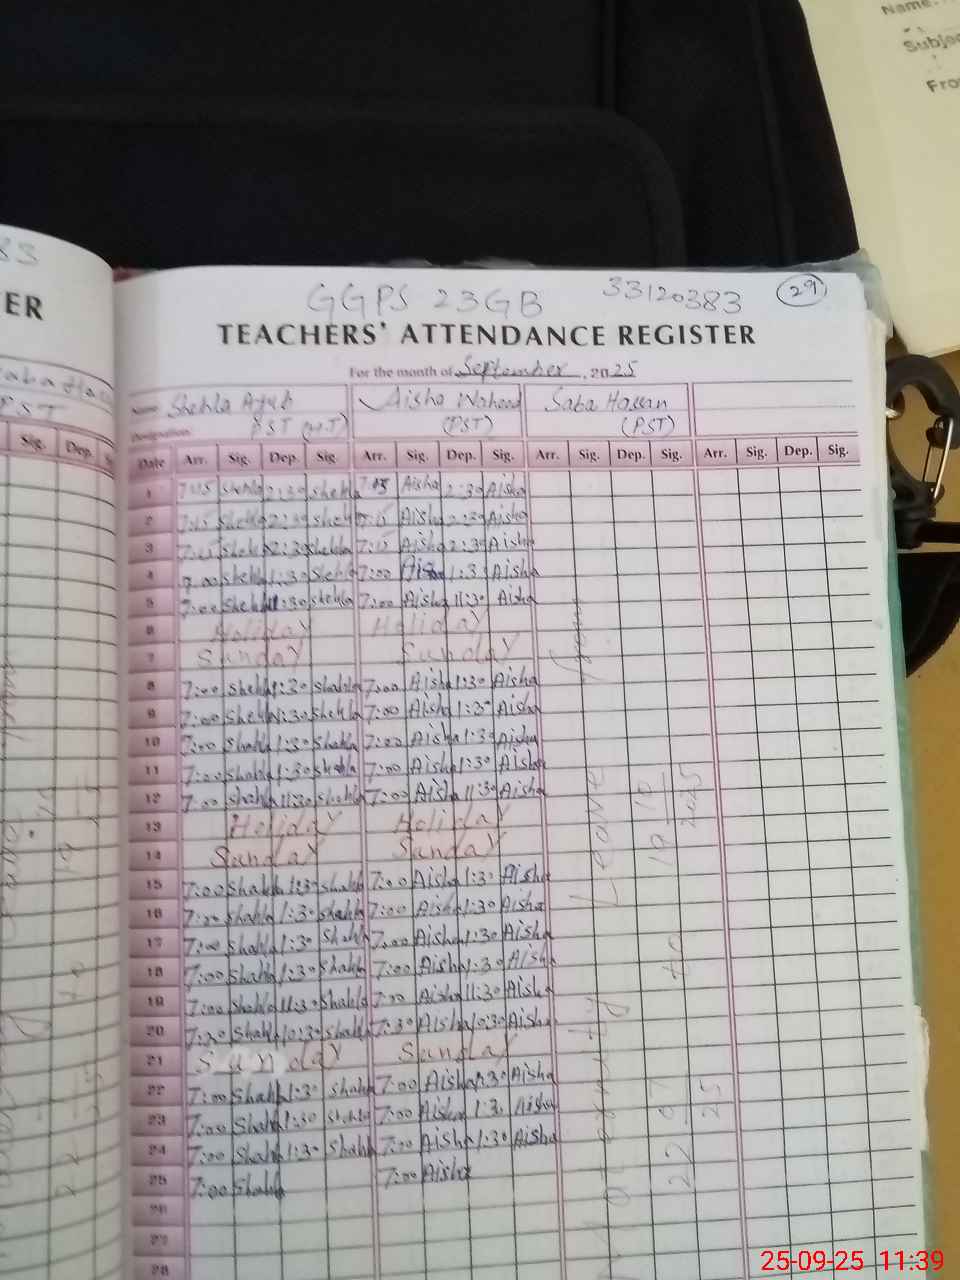 Name.
Subjec
From
83
GGPS 23GB 33120383 29
ER
TEACHERS' ATTENDANCE REGISTER
For the month of September, 2025
Name Shehla Ayub Aisha Waheed Saba Hassan
PST
Designation PST (H.T) (PST) (PST)
Sig. Dep.
Date Arr. Sig. Dep. Sig. Arr. Sig. Dep. Sig. Arr. Sig. Dep. Sig. Arr. Sig. Dep. Sig.
1 7:15 Shehla 2:30 Shehla 7:15 Aisha 2:30 Aisha
2 7:15 Shehla 2:30 Shehla 7:15 Aisha 2:30 Aisha
3 7:15 Shehla 2:30 Shehla 7:15 Aisha 2:30 Aisha
4 7:00 Shehla 1:30 Shehla 7:00 Aisha 1:30 Aisha
5 7:00 Shehla 11:30 Shehla 7:00 Aisha 11:30 Aisha
6 Holiday Holiday
7 Sunday Sunday
8 7:00 Shehla 1:30 Shahla 7:00 Aisha 1:30 Aisha
9 7:00 Shehla 1:30 Shehla 7:00 Aisha 1:30 Aisha
10 7:00 Shahla 1:30 Shahla 7:00 Aisha 1:30 Aisha
11 7:00 Shahla 1:30 Shahla 7:00 Aisha 1:30 Aisha
12 7:00 Shahla 11:30 Shahla 7:00 Aisha 11:30 Aisha
13 Holiday Holiday
14 Sunday Sunday
15 7:00 Shahla 1:30 Shahla 7:00 Aisha 1:30 Aisha
16 7:00 Shahla 1:30 Shahla 7:00 Aisha 1:30 Aisha
17 7:00 Shahla 1:30 Shahla 7:00 Aisha 1:30 Aisha
18 7:00 Shahla 1:30 Shahla 7:00 Aisha 1:30 Aisha
19 7:00 Shahla 11:30 Shahla 7:00 Aisha 11:30 Aisha
20 7:30 Shahla 10:30 Shahla 7:30 Aisha 10:30 Aisha
21 Sunday Sunday
22 7:00 Shahla 1:30 Shahla 7:00 Aisha 1:30 Aisha
23 7:00 Shahla 1:30 Shahla 7:00 Aisha 1:30 Aisha
24 7:00 Shahla 1:30 Shahla 7:00 Aisha 1:30 Aisha
25 7:00 Shahla 7:00 Aisha
26
27
28
Maternity Leave
22 07 25 to 19 10 2025
25-09-25 11:39